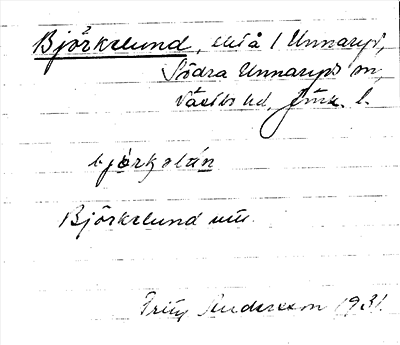 Björkelund, litå 1 Unnaryd,
Södra Unnaryds sn,
Västbo hd, Jönk. l.
björkəlún
Björkelund
Fritz Andersson 1931.